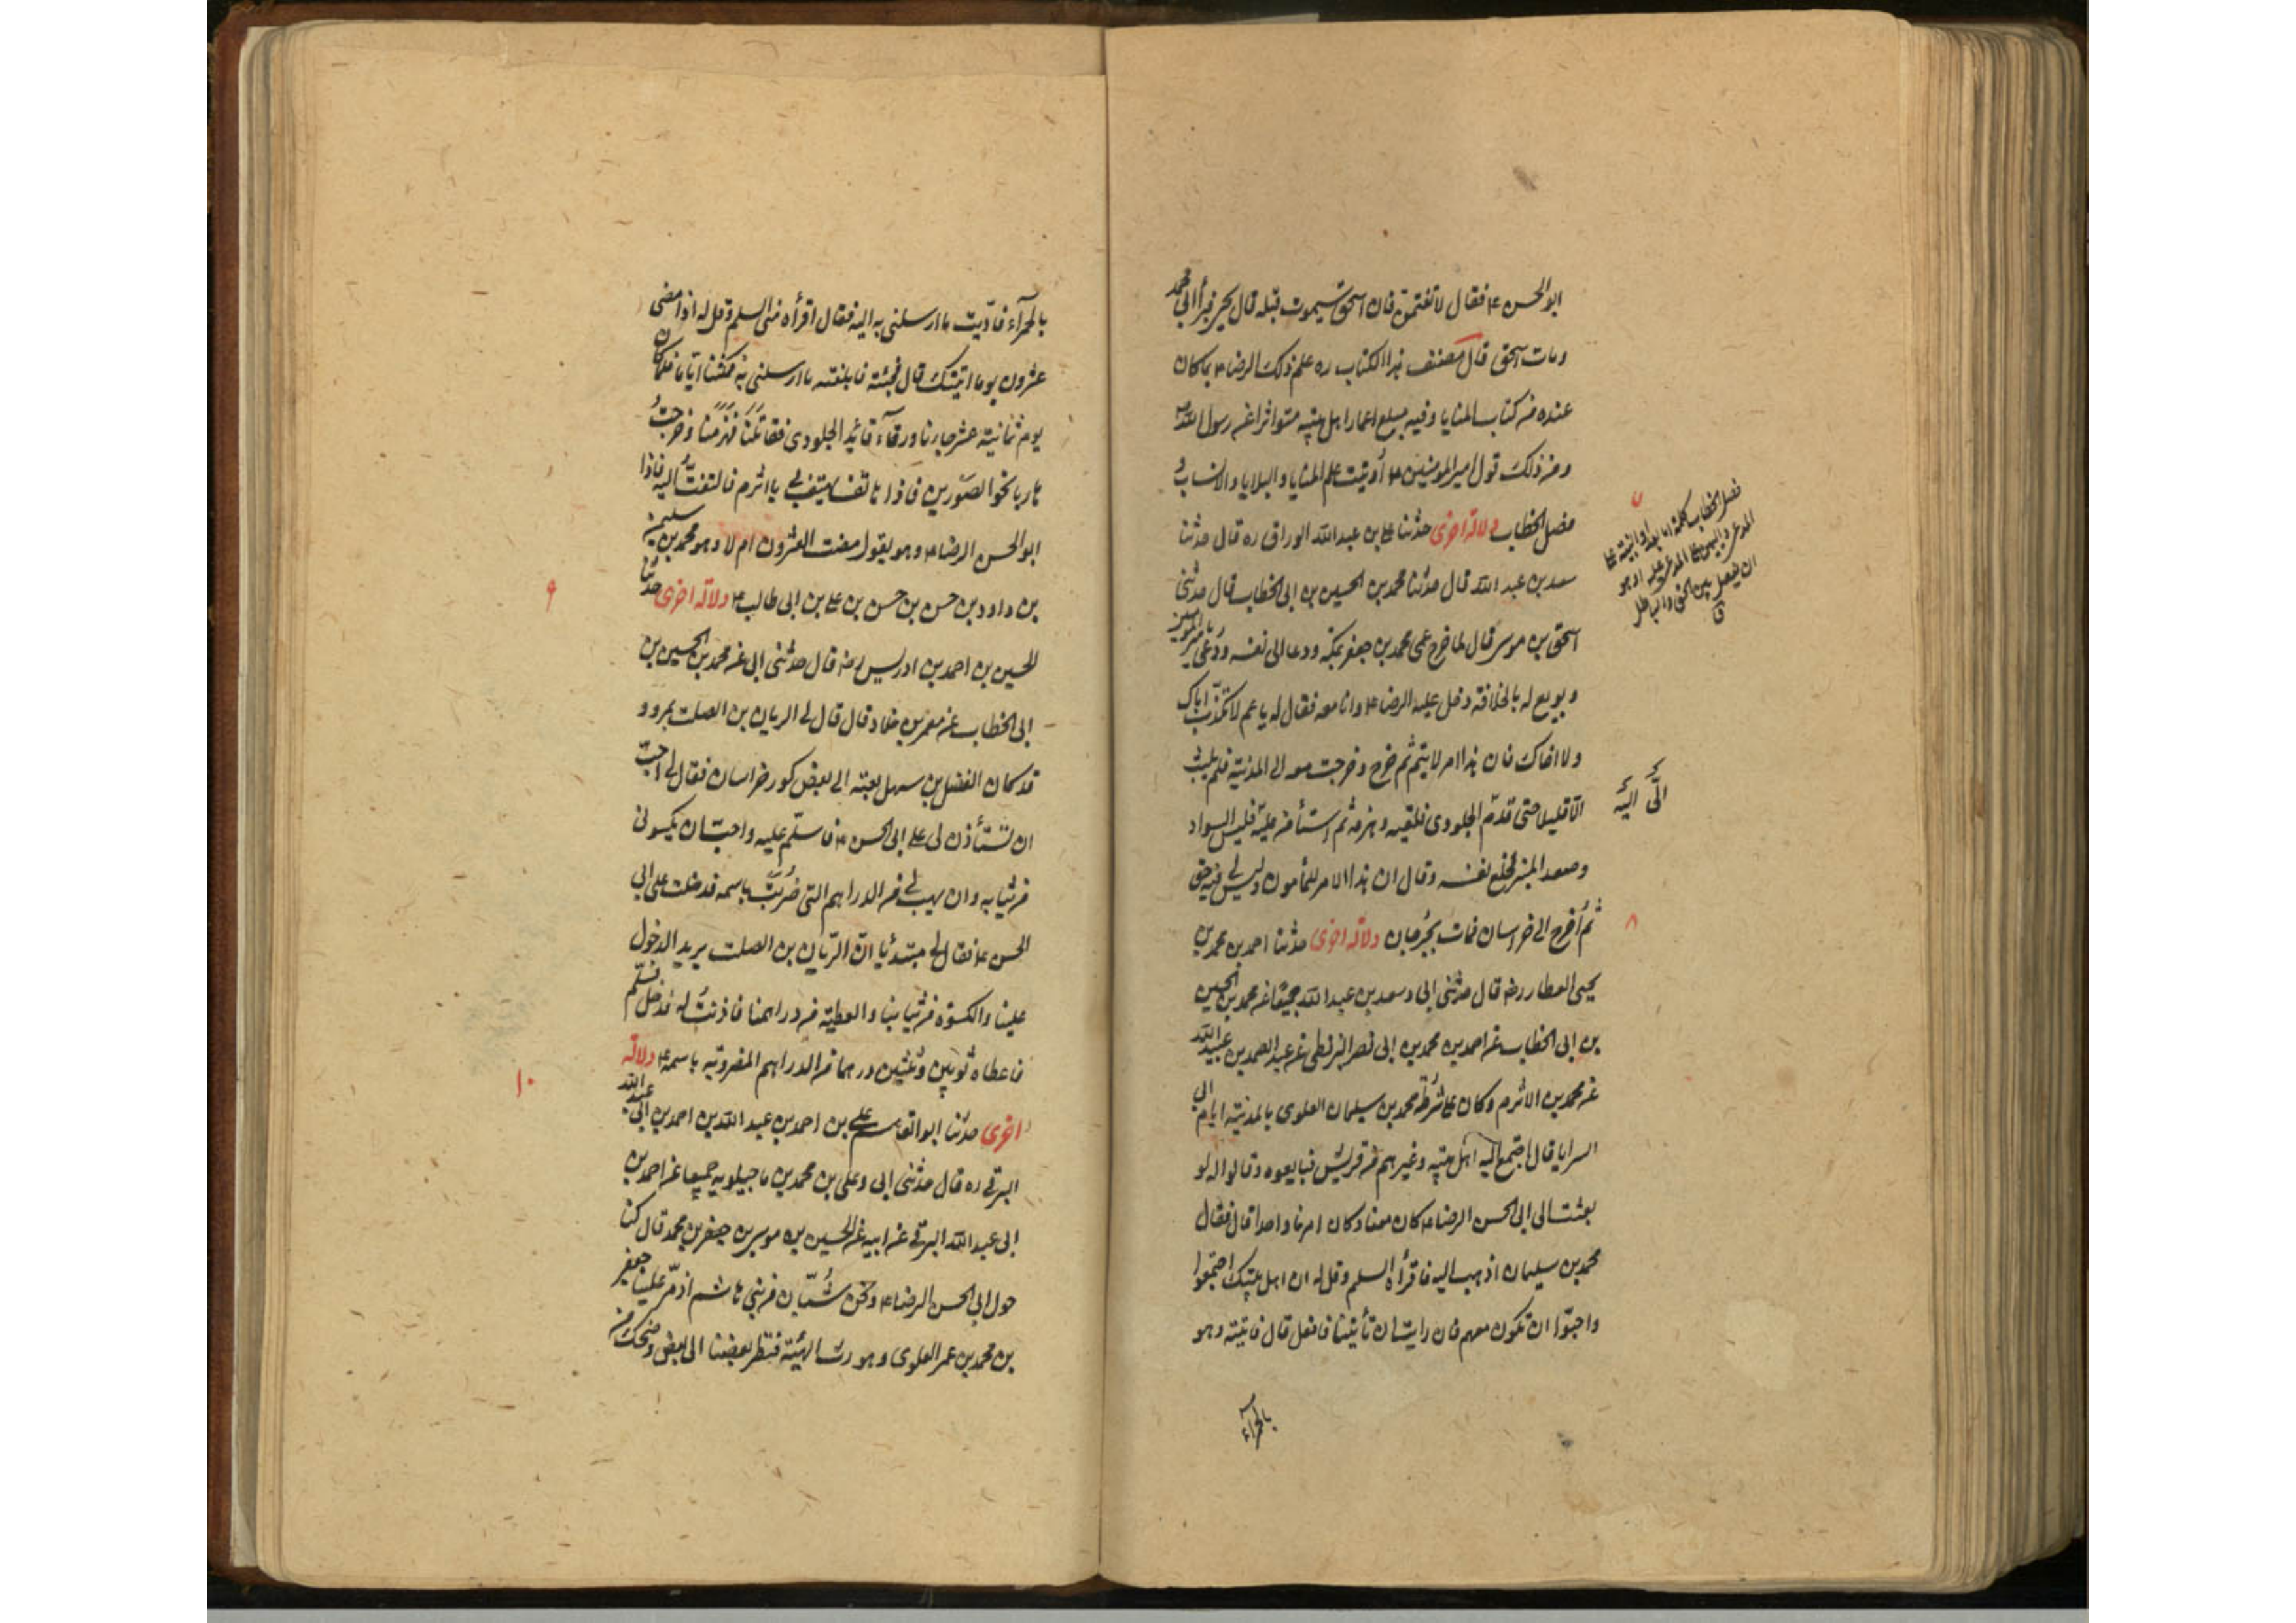 ابو الحسن ع فقال لا تغتمن فان اسحق سيموت قبله قال يحيى فبرأ ابي محمد
ومات اسحق قال مصنف هذا الكتاب ره علم ذلك الرضا ع بما كان
عنده من كتاب المنايا وفيه مبلغ اعمار اهل بيته متواترا عن رسول الله ص
ومن ذلك قول امير المومنين ع أوتيت علم المنايا والبلايا والانساب و
فصل الخطاب دلالة اخرى حدثنا علي بن عبد الله الوراق ره قال حدثنا
سعد بن عبد الله قال حدثنا محمد بن الحسين بن ابي الخطاب قال حدثني
اسحق بن موسى قال لما خرج عمي محمد بن جعفر بمكة ودعا الى نفسه ودعي بامير المومنين
وبويع له بالخلافة دخل عليه الرضا ع وانا معه فقال له يا عم لا تكذب اباك
ولا اخاك فان هذا امر لا يتم ثم خرج وخرجت معه الى المدينة فلم يلبث
الا قليلا حتى قدم الجلودي فلقيه وهزمه ثم استأمن عليه فلبس السواد
وصعد المنبر فخلع نفسه وقال ان هذا الامر للمأمون وليس لي فيه حق
ثم أخرج الى خراسان فمات بجرجان دلالة اخرى حدثنا احمد بن محمد بن
يحيى العطار رضه قال حدثني ابي وسعد بن عبد الله جميعا عن محمد بن الحسين
بن ابي الخطاب عن احمد بن محمد بن ابي نصر البزنطي عن عبد الصمد بن عبيد الله
عن محمد بن الاثرم وكان على شرطة محمد بن سليمان العلوي بالمدينة ايام ابي
السرايا قال اجتمع اليه اهل بيته وغيرهم من قريش فبايعوه وقالوا له لو
بعثت الى ابي الحسن الرضا ع كان معنا وكان امرنا واحدا قال فقال
محمد بن سليمان اذهب اليه فاقرأه السلم وقل له ان اهل بيتك اجتمعوا
واحبوا ان تكون معهم فان رايت ان تأتينا فافعل قال فاتيته وهو
بالحمرآء
٧
فصل الخطاب كلمة اما بعد او البينة على
المدعي واليمين على المدعى عليه او هو
ان يفصل بين الحق والباطل
ق
اليّ اليه
٨
بالحمرآء فادّيت ما ارسلني به اليه فقال اقرأه مني السلم وقل له اذا مضى
عشرون يوما اتيتك قال فجئته فابلغته ما ارسلني به فمكثنا اياما فلما كان
يوم ثمانية عشر جاءنا ورقآء قائد الجلودي فقاتلنا فهزمنا وخرجت
هاربا نحو الصورين فاذا هاتف يهتف بي يا اثرم فالتفت اليه فاذا
ابو الحسن الرضا ع وهو يقول مضت العشرون ام لا وهو محمد بن سليمن
بن داود بن حسن بن حسن بن علي بن ابي طالب ع دلالة اخرى حدثنا
الحسين بن احمد بن ادريس رضه قال حدثني ابي عن محمد بن الحسين بن
ابي الخطاب عن معمر بن خلاد قال قال لي الريان بن الصلت بمرو و
قد كان الفضل بن سهل بعثه الى بعض كور خراسان فقال لي احب
ان تستأذن لي على ابي الحسن ع فاسلّم عليه واحب ان يكسوني
من ثيابه وان يهب لي من الدراهم التي ضربت باسمه فدخلت على ابي
الحسن ع فقال لي مبتدئا ان الريان بن الصلت يريد الدخول
علينا والكسوة من ثيابنا والعطية من دراهمنا فاذنت له فدخل فسلم
فاعطاه ثوبين وثلثين درهما من الدراهم المضروبة باسمه ع دلالة
اخرى حدثنا ابو القاسم علي بن احمد بن عبد الله بن احمد بن ابي عبد الله
البرقي ره قال حدثني ابي وعلي بن محمد بن ماجيلويه جميعا عن احمد بن
ابي عبد الله البرقي عن ابيه عن الحسين بن موسى بن جعفر بن محمد قال كنا
حول ابي الحسن الرضا ع ونحن شبّان من بني هاشم اذ مرّ علينا جعفر
بن محمد بن عمر العلوي وهو رث الهيئة فنظر بعضنا الى بعض وضحك من
٩
١٠